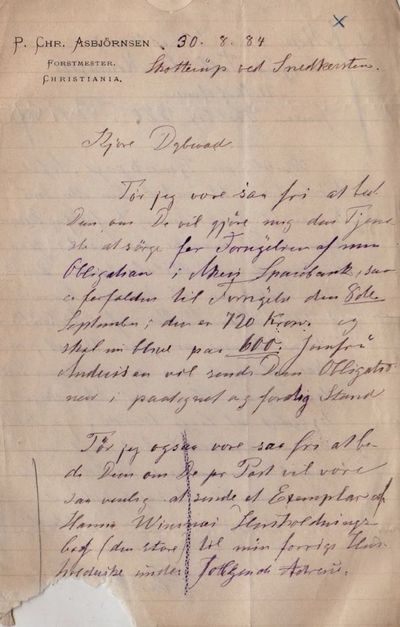 P. Chr. Asbjörnsen. 30. 8. 84
Forstmester.
Christiania.
Skotterup ved Snedkersten.
Kjære Dybwad
Tör jeg være saa fri at bed
Dem om De vil gjöre mig den Tjene
ste at sörge for Fornyelsen af min
Obligation i Akers Sparebank, som
er forfalden til Fornyelse den 8de
September; den er 720 Kron. og
skal nu blive paa 600. Jomfru
Andersen vil sende Dem Obligatio
nen i paategnet og færdig Stand
Tör jeg ogsaa være saa fri at be
de Dem om De pr Post vil være
saa venlig at sende et Exemplar af
Hanna Winsnæs Husholdnings
bog (den store) til min forrige Hus
holderske under fölgende Adresse.